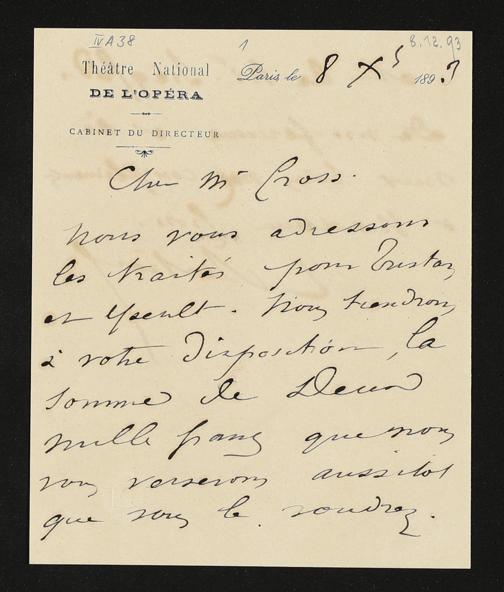 IV A 38 1 8.12.93
Théâtre National
DE L'OPÉRA
CABINET DU DIRECTEUR
Paris le 8 Xs 1893
Cher Mr Gross.
Nous vous adressons
les traités pour Tristan
et Yseult. Nous tiendrons
à votre disposition, la
somme de Deux
mille francs que nous
vous verserons aussitôt
que vous le voudrez.